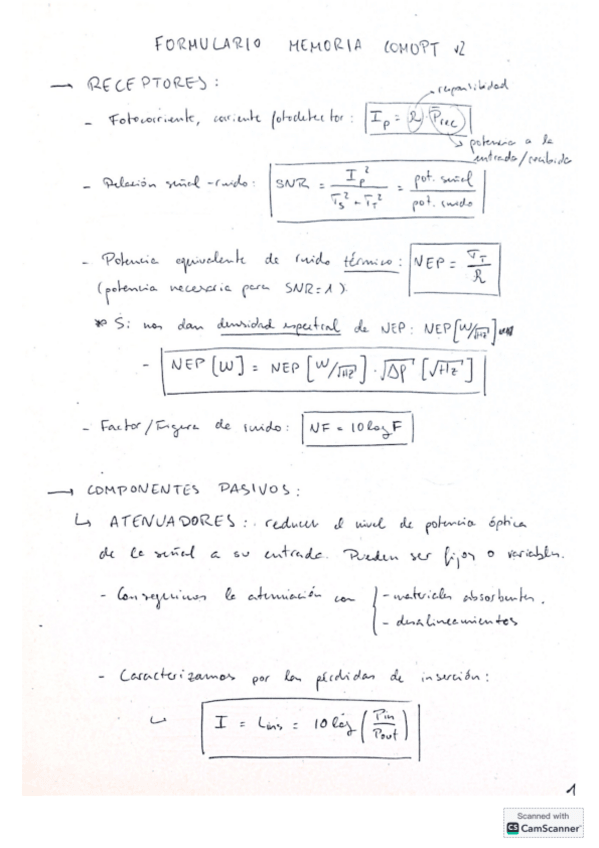 FORMULARIO MEMORIA COMOPT v2
→ RECEPTORES:
responsividad
- Fotocorriente, corriente fotodetector: I_p = R · P_rec
potencia a la
entrada/recibida
- Relación señal-ruido: SNR = I_p² / σ_s² - σ_T² = pot. señal / pot. ruido
- Potencia equivalente de ruido térmico: NEP = σ_T / R
(potencia necesaria para SNR=1)
* Si nos dan densidad espectral de NEP: NEP [W/√Hz]
- NEP [W] = NEP [W/√Hz] · √Δf [√Hz]
- Factor/Figura de ruido: NF = 10 log F
→ COMPONENTES PASIVOS:
↳ ATENUADORES: reducen el nivel de potencia óptica
de la señal a su entrada. Pueden ser fijos o variables.
- Conseguimos la atenuación con { - materiales absorbentes.
- desalineamientos
- Caracterizamos por las pérdidas de inserción:
↳ I = L_ins = 10 log (P_in / P_out)
1
Scanned with
CS CamScanner